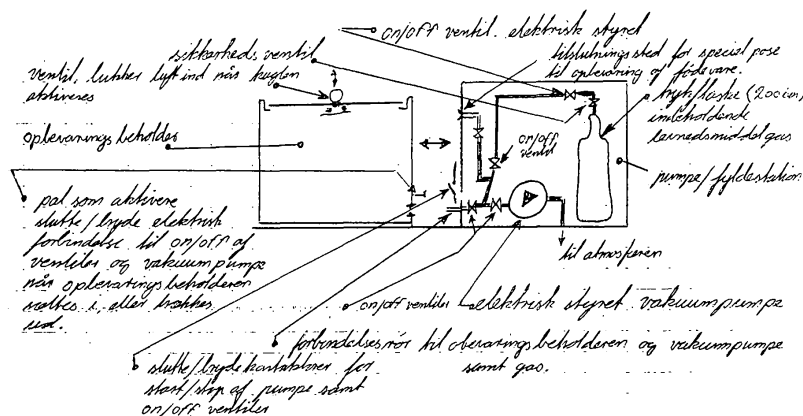 on/off ventil. elektrisk styret
sikkerheds ventil
tilslutningssted for special pose
til opbevaring af fødevare.
ventil, lukker luft ind når kuglen
aktiveres
trykflaske (200 cm)
indeholdende
levnedsmiddelgas
opbevarings beholder
on/off
ventil
pumpe/fyldestation
pal som aktivere
slutte/bryde elektrisk
forbindelse til on/off af
ventiler og vakuumpumpe
når opbevaringsbeholderen
sættes i, eller trækkes
ud.
til atmosfæren
on/off ventiler
elektrisk styret vakuumpumpe
forbindelsesrör til obevaringsbeholderen og vakuumpumpe
samt gas.
slutte/brydekontaktorer for
start/stop af pumpe samt
on/off ventiler